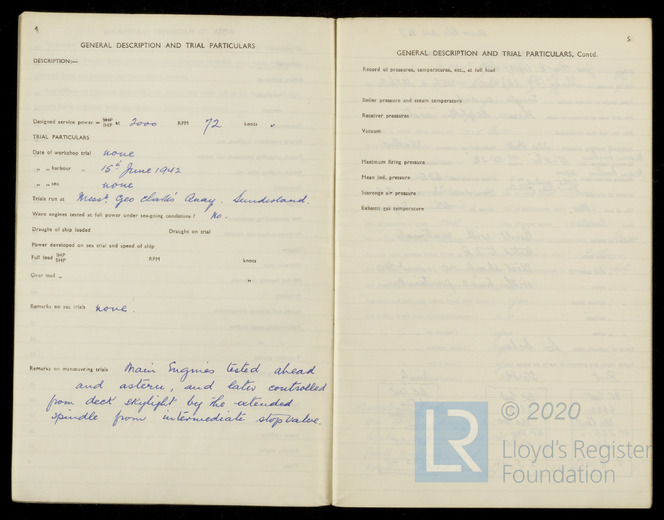 4
GENERAL DESCRIPTION AND TRIAL PARTICULARS
DESCRIPTION:—
Designed service power = SHP IHP at 2000 RPM 72 knots "
TRIAL PARTICULARS
Date of workshop trial none
" " harbour " 15th June 1942
" " sea none
Trials run at Messrs Geo Clarks Quay. Sunderland.
Were engines tested at full power under sea-going conditions? No.
Draught of ship loaded Draught on trial
Power developed on sea trial and speed of ship
Full load IHP SHP RPM knots
Over load " "
Remarks on sea trials none.
Remarks on manœuvring trials Main Engines tested ahead
and astern, and later controlled
from deck skylight by the extended
spindle from intermediate stop valve.
5
GENERAL DESCRIPTION AND TRIAL PARTICULARS, Contd.
Record of pressures, temperatures, etc., at full load
Boiler pressure and steam temperature
Receiver pressures
Vacuum
Maximum firing pressure
Mean ind. pressure
Scavenge air pressure
Exhaust gas temperature
LR
© 2020
Lloyd's Register
Foundation